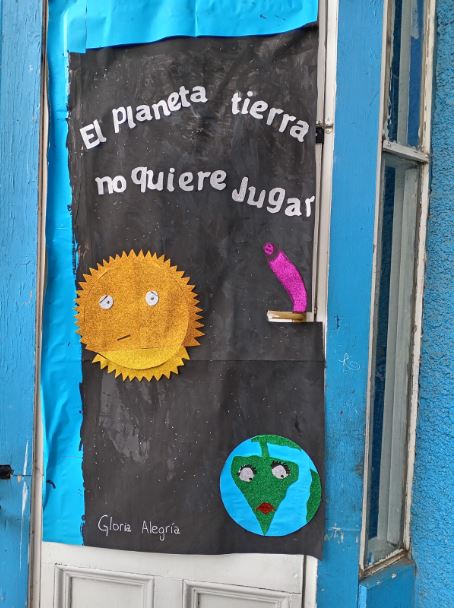 El Planeta tierra
no quiere Jugar
Gloria Alegría